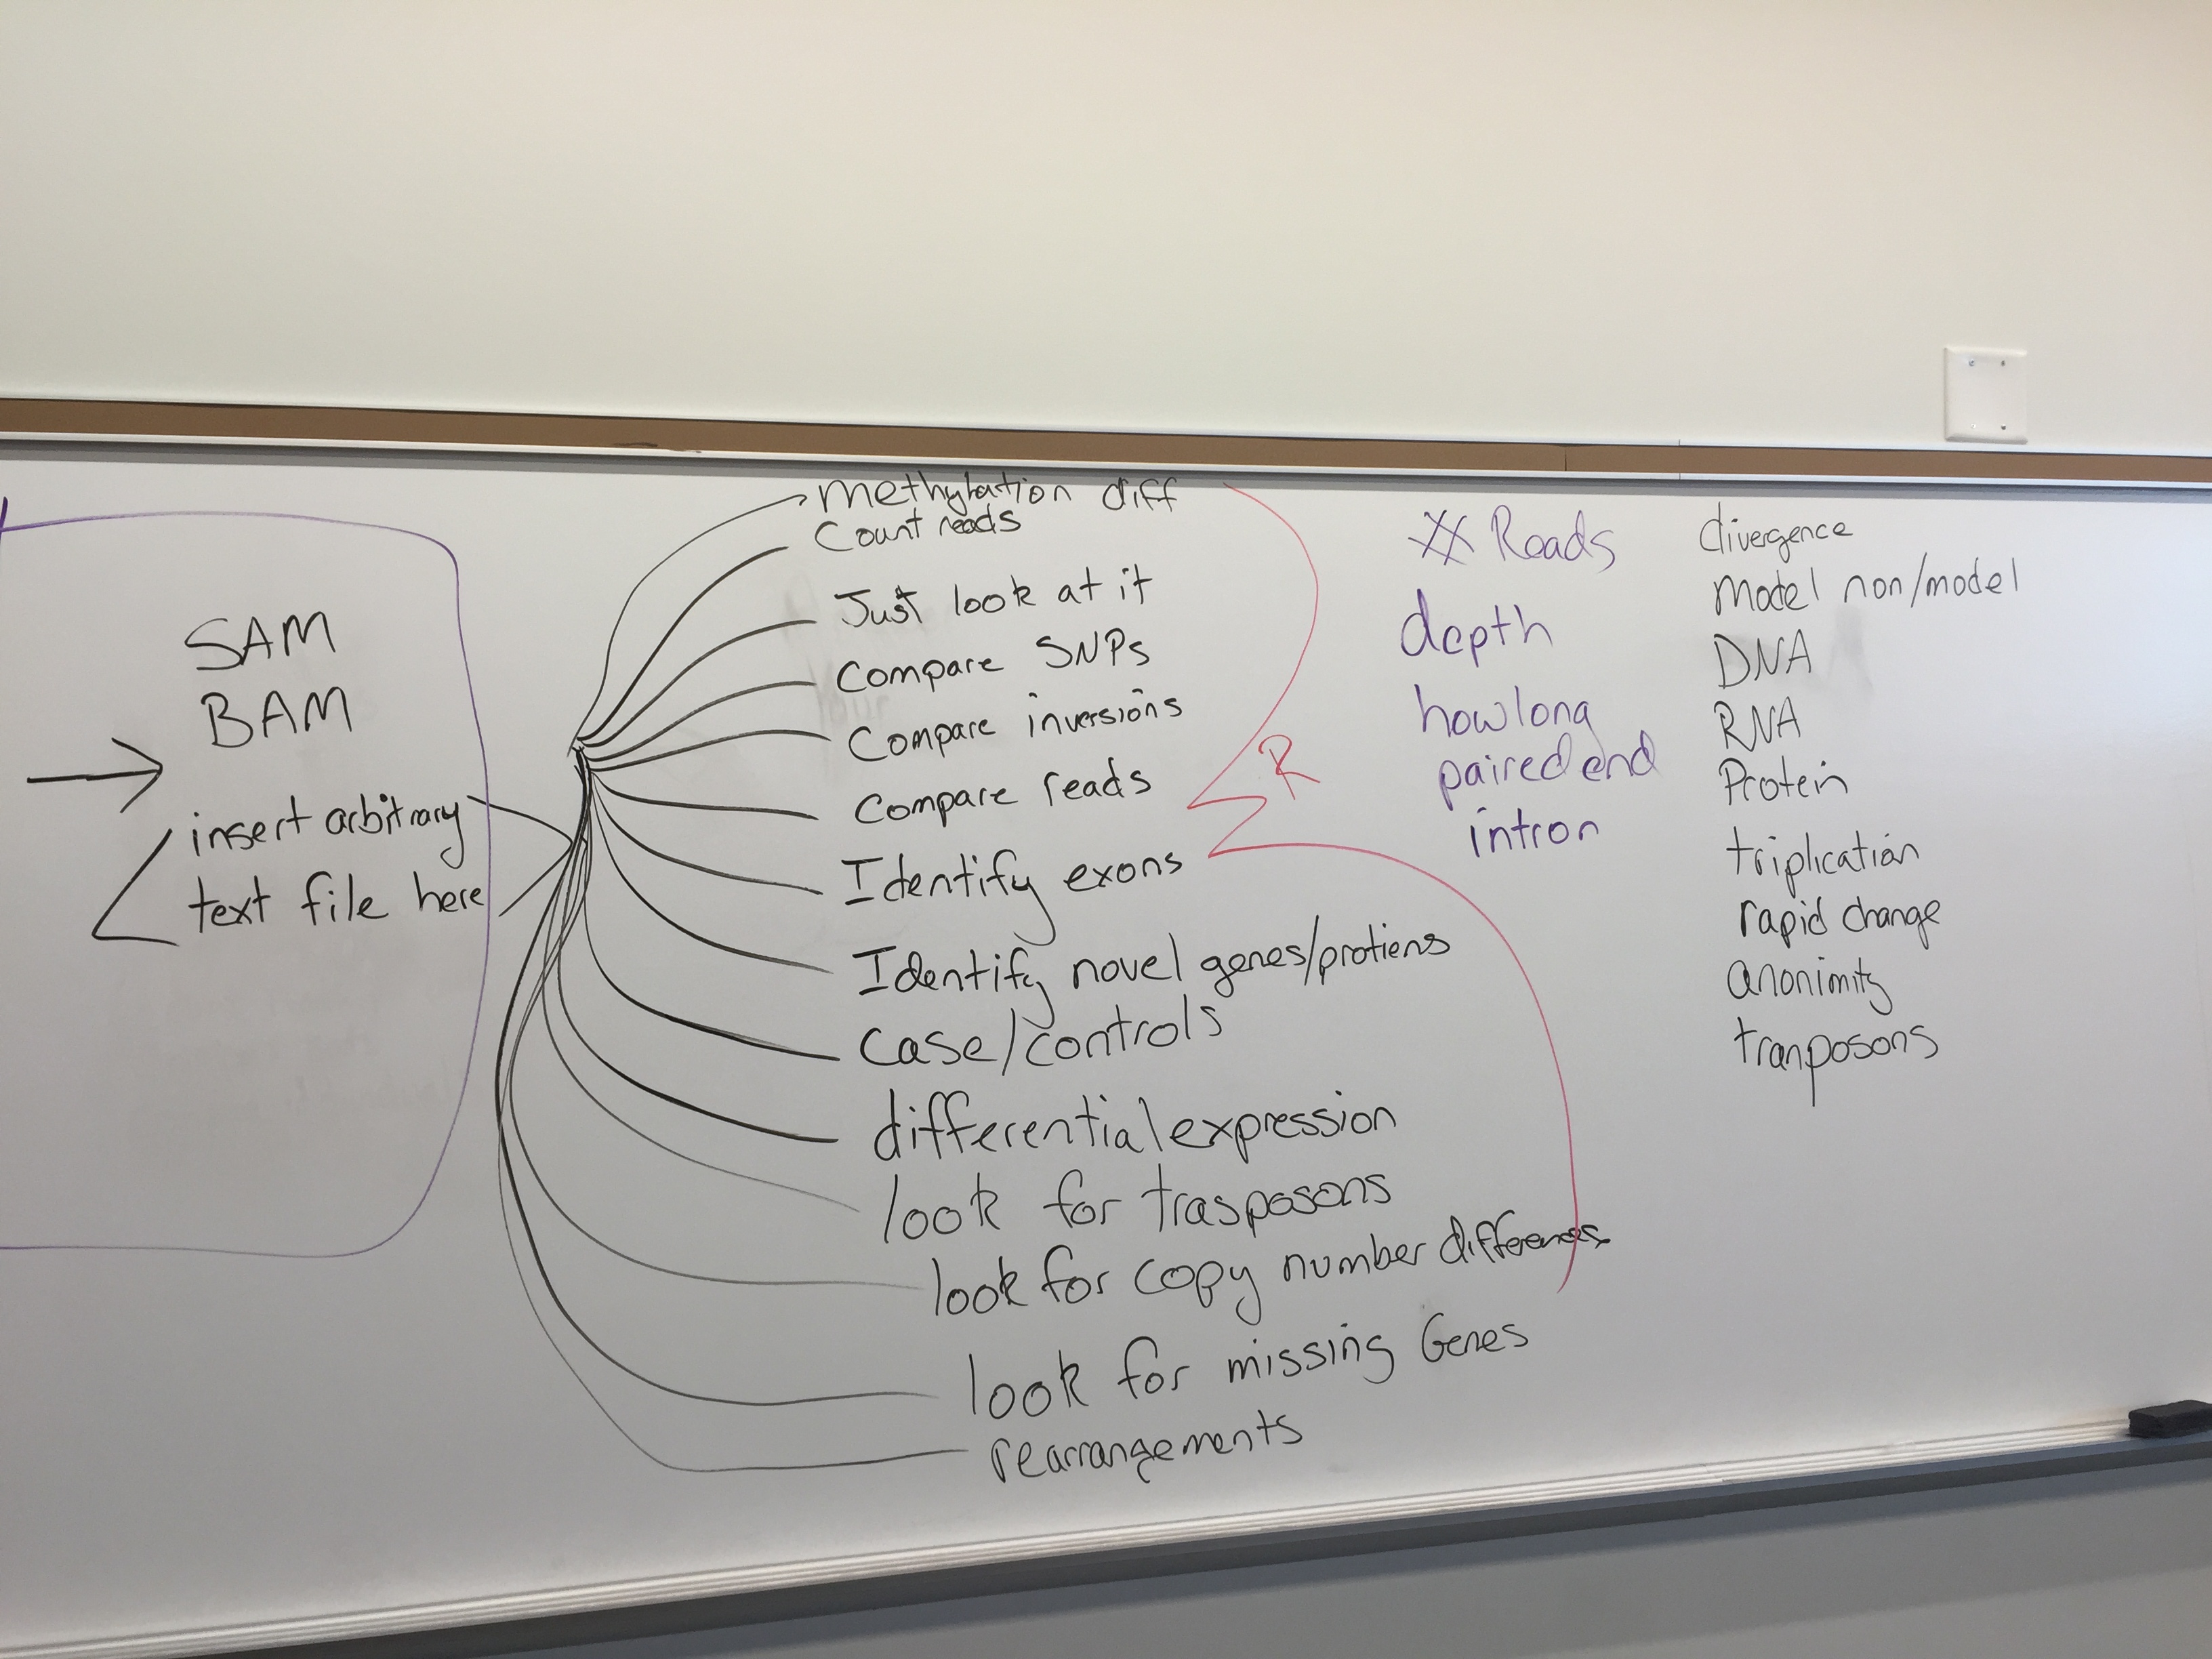 SAM
BAM
insert arbitrary
text file here
methylation diff
Count reads
Just look at it
Compare SNPs
Compare inversions
Compare reads
Identify exons
Identify novel genes/protiens
case/controls
differential expression
look for trasposons
look for copy number differences
look for missing Genes
rearrangements
R
# Reads
depth
how long
paired end
intron
divergence
Model non/model
DNA
RNA
Protein
triplication
rapid change
anonimity
tranposons